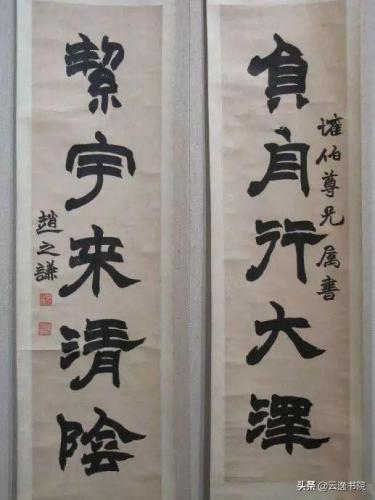 伯尊兄属書
負舟行大澤
絜宇来清陰
趙之謙
头条 @云逸书院